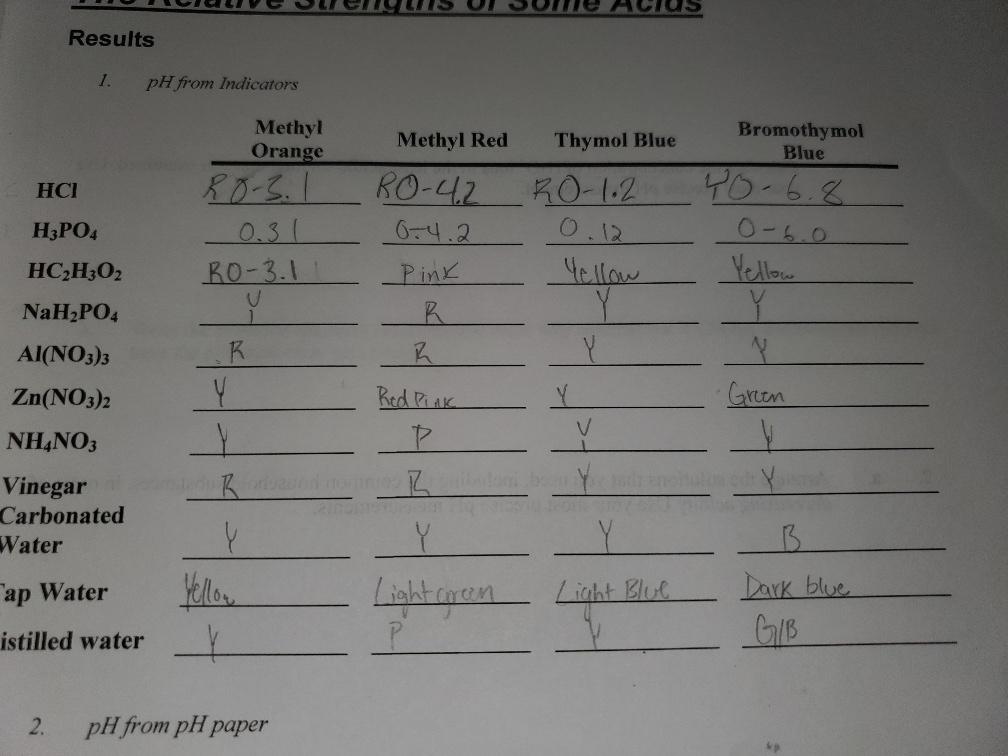 The Relative Strengths of Some Acids
Results
1. pH from Indicators
Methyl Orange Methyl Red Thymol Blue Bromothymol Blue
HCl RO-3.1 RO-4.2 RO-1.2 YO-6.8
H₃PO₄ 0.31 0-4.2 0.12 0-6.0
HC₂H₃O₂ RO-3.1 Pink Yellow Yellow
NaH₂PO₄ Y R Y Y
Al(NO₃)₃ R R Y Y
Zn(NO₃)₂ Y Red Pink Y Green
NH₄NO₃ Y P Y Y
Vinegar R R Y Y
Carbonated Water Y Y Y B
Tap Water Yellow Light green Light Blue Dark blue
istilled water Y P Y G/B
2. pH from pH paper